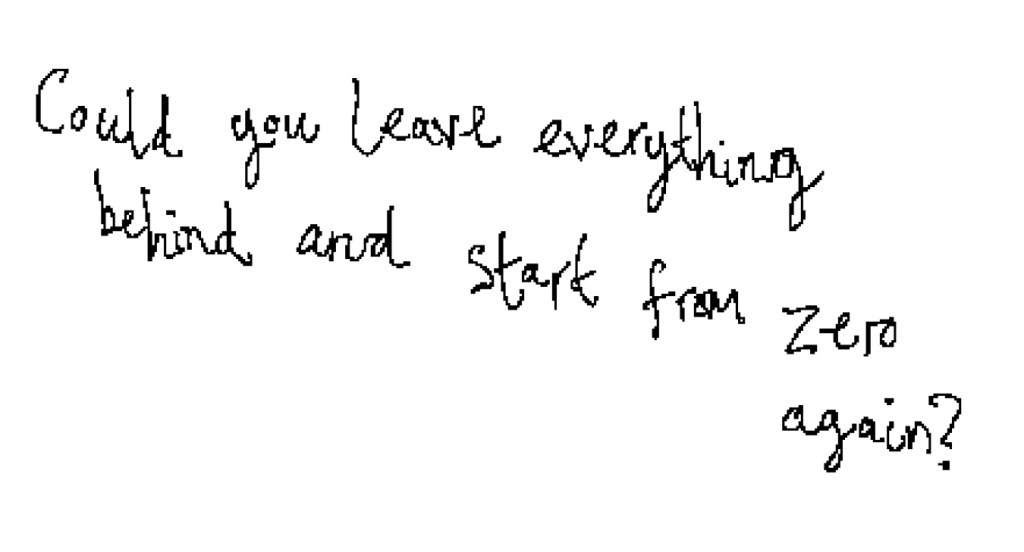 Could you leave everything
behind and start from zero
again?